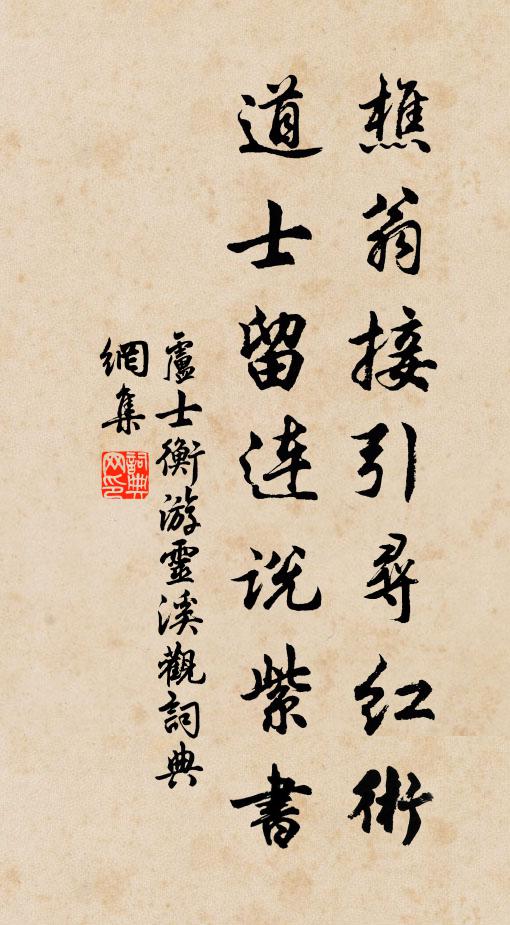 樵翁接引尋紅術
道士留连説紫書
盧士衡游靈溪觀詞典
網集
詞典網印